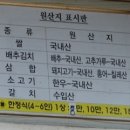 원산지 표시판
종류 원산지
쌀 국내산
배추김치 배추-국내산, 고추가루-국내산
삼합 돼지고기-국내산, 홍어-칠레산
소고기 한우-국내산
갈치 수입산
한정식(4~6인) 1상 10만, 12만